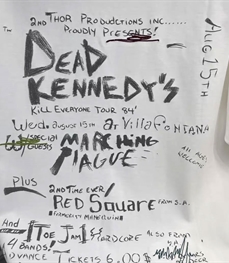 2nd Thor Productions Inc......
Proudly Presents!
Dead
Kennedy's
Kill Everyone Tour 84'
Wed, August 15th at Villa Fontana
w/ special guests
Marching
Plague
All Ages
Welcome
Plus
2nd Time Ever!
Red Square from S.A.
Formerly
And
Toe Jam
Hardcore
Also from
4 Bands!
Advance Tickets 6.00$
Aug 15th